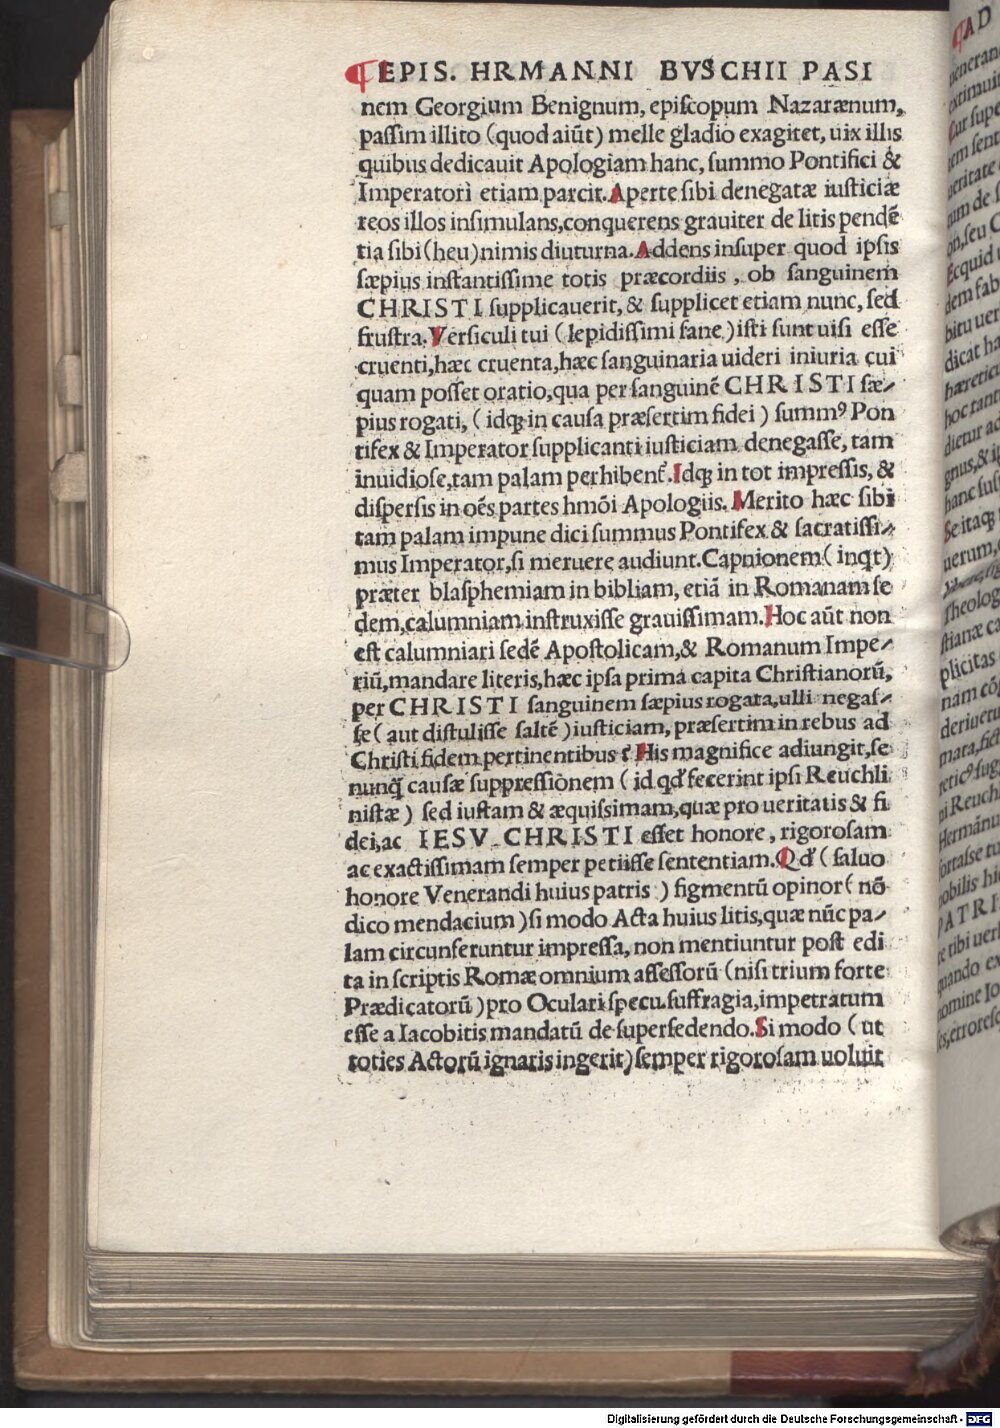 ¶EPIS. HRMANNI BVSCHII PASI
nem Georgium Benignum, epiſcopum Nazarænum,
paſſim illito (quod aiūt) melle gladio exagitet, uix illis
quibus dedicauit Apologiam hanc, ſummo Pontifici &
Imperatori etiam parcit. Aperte ſibi denegatæ iuſticiæ
reos illos inſimulans, conquerens grauiter de litis pendē
tia ſibi (heu) nimis diuturna. Addens inſuper quod ipſis
ſæpius inſtantiſſime totis præcordiis, ob ſanguinem
CHRISTI ſupplicauerit, & ſupplicet etiam nunc, ſed
fruſtra. Verſiculi tui (lepidiſſimi ſane) iſti ſunt uiſi eſſe
cruenti, hæc cruenta, hæc ſanguinaria uideri iniuria cui
quam poſſet oratio, qua per ſanguinē CHRISTI ſæ⸗
pius rogati, (idqꝫ in cauſa præſertim fidei) ſummꝰ Pon
tifex & Imperator ſupplicanti iuſticiam denegaſſe, tam
inuidioſe, tam palam perhibent᷑. Idqꝫ in tot impreſſis, &
diſperſis in oēs partes hmōi Apologiis. Merito hæc ſibi
tam palam impune dici ſummus Pontifex & ſacratiſſi⸗
mus Imperator, ſi meruere audiunt. Capnionem (inqt)
præter blaſphemiam in bibliam, etiā in Romanam ſe
dem, calumniam inſtruxiſſe grauiſſimam. Hoc aūt non
eſt calumniari ſedē Apoſtolicam, & Romanum Impe⸗
riū, mandare literis, hæc ipſa prima capita Chriſtianorū,
per CHRISTI ſanguinem ſæpius rogata, ulli negaſ⸗
ſe (aut diſtuliſſe ſaltē) iuſticiam, præſertim in rebus ad
Chriſti fidem pertinentibus? His magnifice adiungit, ſe
nunq̄ cauſæ ſuppreſſionem (id qđ fecerint ipſi Reuchli
niſtæ) ſed iuſtam & æquiſsimam, quæ pro ueritatis & fi
dei, ac IESV CHRISTI eſſet honore, rigoroſam
ac exactiſſimam ſemper petiiſſe ſententiam. Qđ (ſaluo
honore Venerandi huius patris) figmentū opinor (nō
dico mendacium) ſi modo Acta huius litis, quæ nūc pa⸗
lam circunferuntur impreſſa, non mentiuntur poſt edi
ta in ſcriptis Romæ omnium aſſeſſorū (niſi trium forte
Prædicatorū) pro Oculari ſpecu. ſuffragia, impetratum
eſſe a Iacobitis mandatū de ſuperſedendo. Si modo (ut
toties Actorū ignaris ingerit) ſemper rigoroſam uoluit
Digitalisierung gefördert durch die Deutsche Forschungsgemeinschaft - DFG